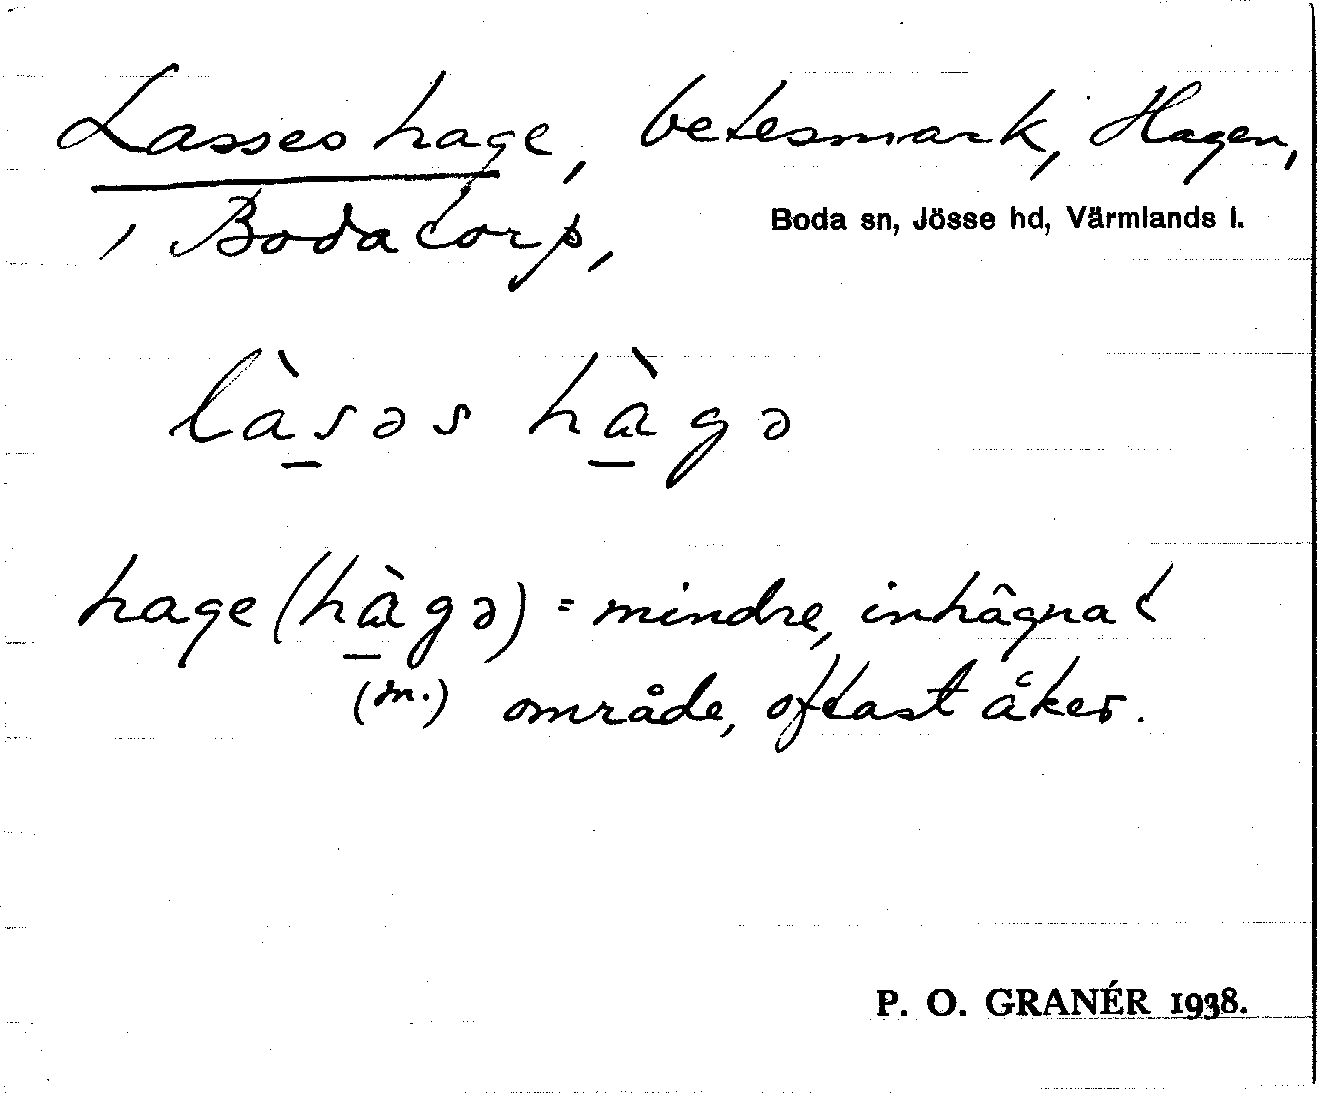 Lasses hage, betesmark, Hagen,
, Bodatorp,
Boda sn, Jösse hd, Värmlands l.
là̱səs hà̱gə
hage (hà̱gə) = mindre, inhägnat
(m.) område, oftast åker.
P. O. GRANÉR 1938.